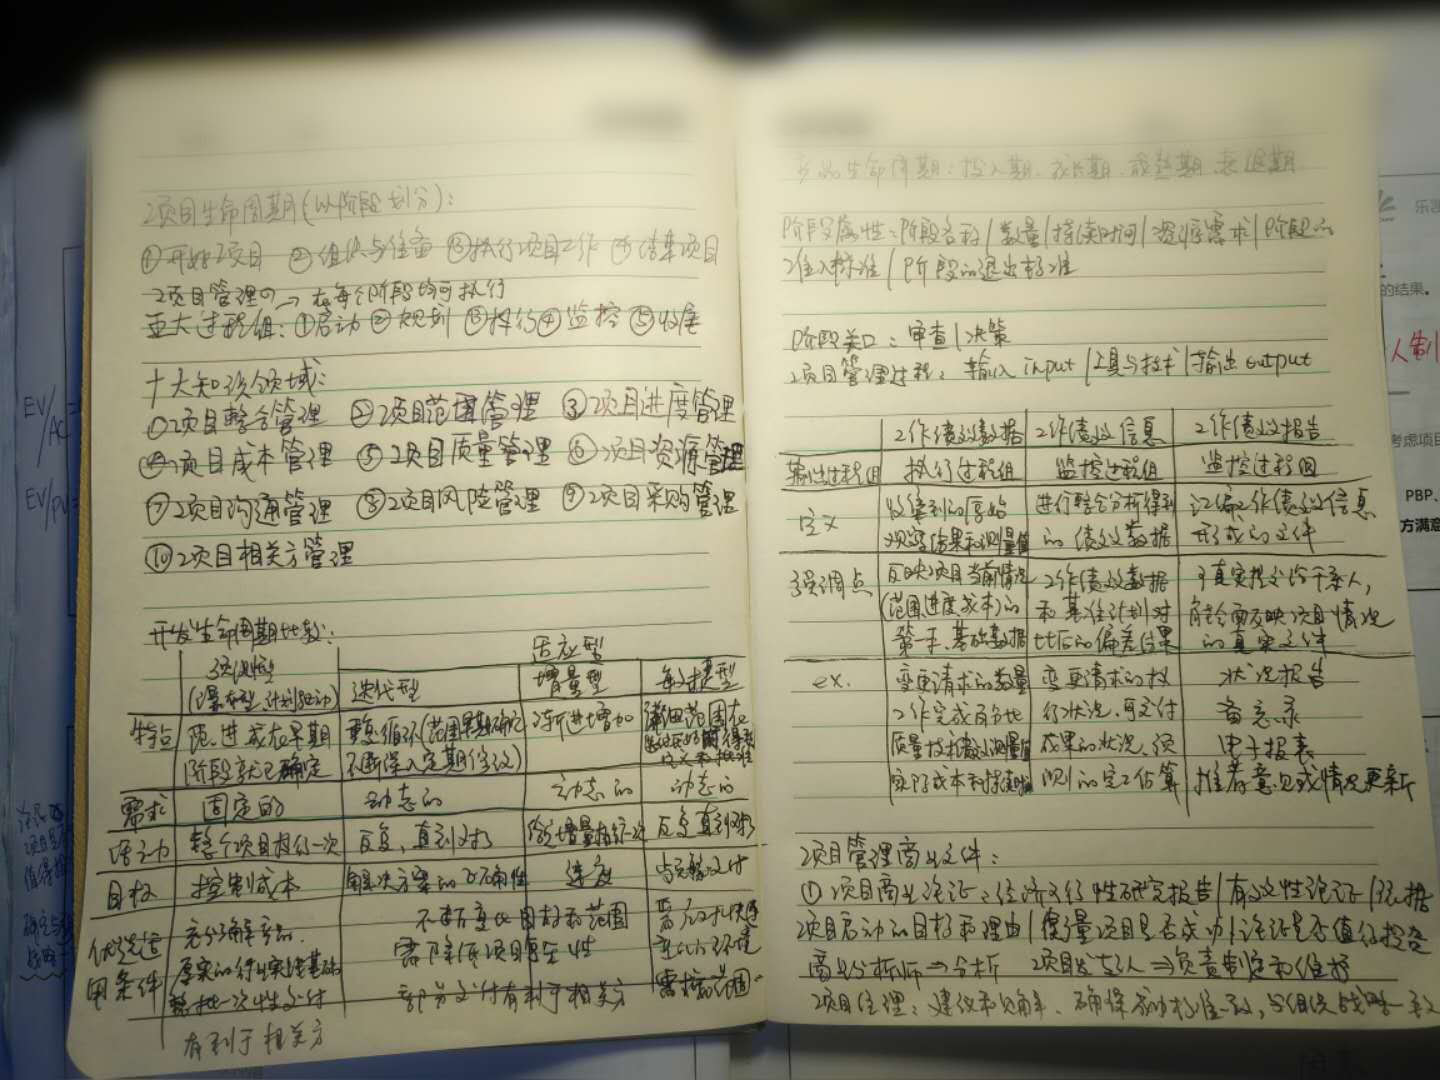 项目生命周期(以阶段划分):
①开始项目 ②组织与准备 ③执行项目工作 ④结束项目
项目管理的 → 在每个阶段均可执行
五大过程组:①启动②规划 ③执行④监控 ⑤收尾
十大知识领域:
①项目整合管理 ②项目范围管理 ③项目进度管理
④项目成本管理 ⑤项目质量管理 ⑥项目资源管理
⑦项目沟通管理 ⑧项目风险管理 ⑨项目采购管理
⑩项目相关方管理
开发生命周期比较:
适应型
预测型 迭代型 增量型 敏捷型
(瀑布型 计划驱动)
特点 范、进、成在早期 重复循环(范围早期确定 渐进增加
阶段就已确定 不断深入定期修改)
需求 固定的 动态的 动态的 动态的
活动 整个项目执行一次 反复,直到对 反复直到对
目标 控制成本 解决方案的正确性 速度
优先适 充分了解产品 不断变化目标和范围
用条件 厚实的行业实践基础 需降低项目复杂性
整批一次性交付 部分交付有利于相关方
有利于相关方
产品生命周期:投入期、成长期、成熟期、衰退期
阶段属性:阶段名称|数量|持续时间|资源需求|阶段的
准入标准|阶段的退出标准
阶段关口:审查|决策
项目管理过程:输入 input|工具与技术|输出 output
工作绩效数据 工作绩效信息 工作绩效报告
输出过程组 执行过程组 监控过程组 监控过程组
定义 收集到的原始 进行整合分析得到 汇编工作绩效信息
观察结果和测量值 的绩效数据 形成的文件
强调点 反映项目当前情况 工作绩效数据
(范围进度成本)的 和基准计划对
第一手、基础数据 比后的偏差结果 的真实文件
ex. 变更请求的数量 变更请求的执 状况报告
工作完成百分比 行状况、可交付 备忘录
成果的状况、预 电子报表
测的完工估算 推荐意见或情况更新
项目管理商业文件:
①项目商业论证:经济可行性研究报告|有效性论证|依据
项目启动的目标和理由|衡量项目是否成功|论证是否值得投资
商业分析师⇒分析 项目发起人⇒负责制定和维护
项目经理:建议和见解、确保
EV/AC=
EV/PV=
的结果。
考虑项目
PBP、
方满意